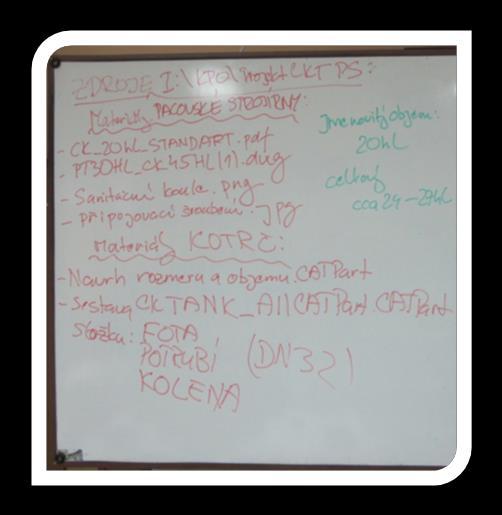 ZDROJE I:\KPO\Projekt CKT PS:
Materiály PACOVSKÉ STROJÍRNY:
- CK_20HL_STANDART.pdf
- PT30HL_CK45HL(1).dwg
- Sanitační koule.png
- připojovací šroubení.JPG
Materiály KOTRČ:
- Navrh rozmeru a objemu.CATPart
- Sestava CKTANK_All CATPart.CATPart
Složku: FOTA,
POTRUBÍ (DN32)
KOLENA
Jmenovitý objem:
20hL
celkový
cca 24-27hL